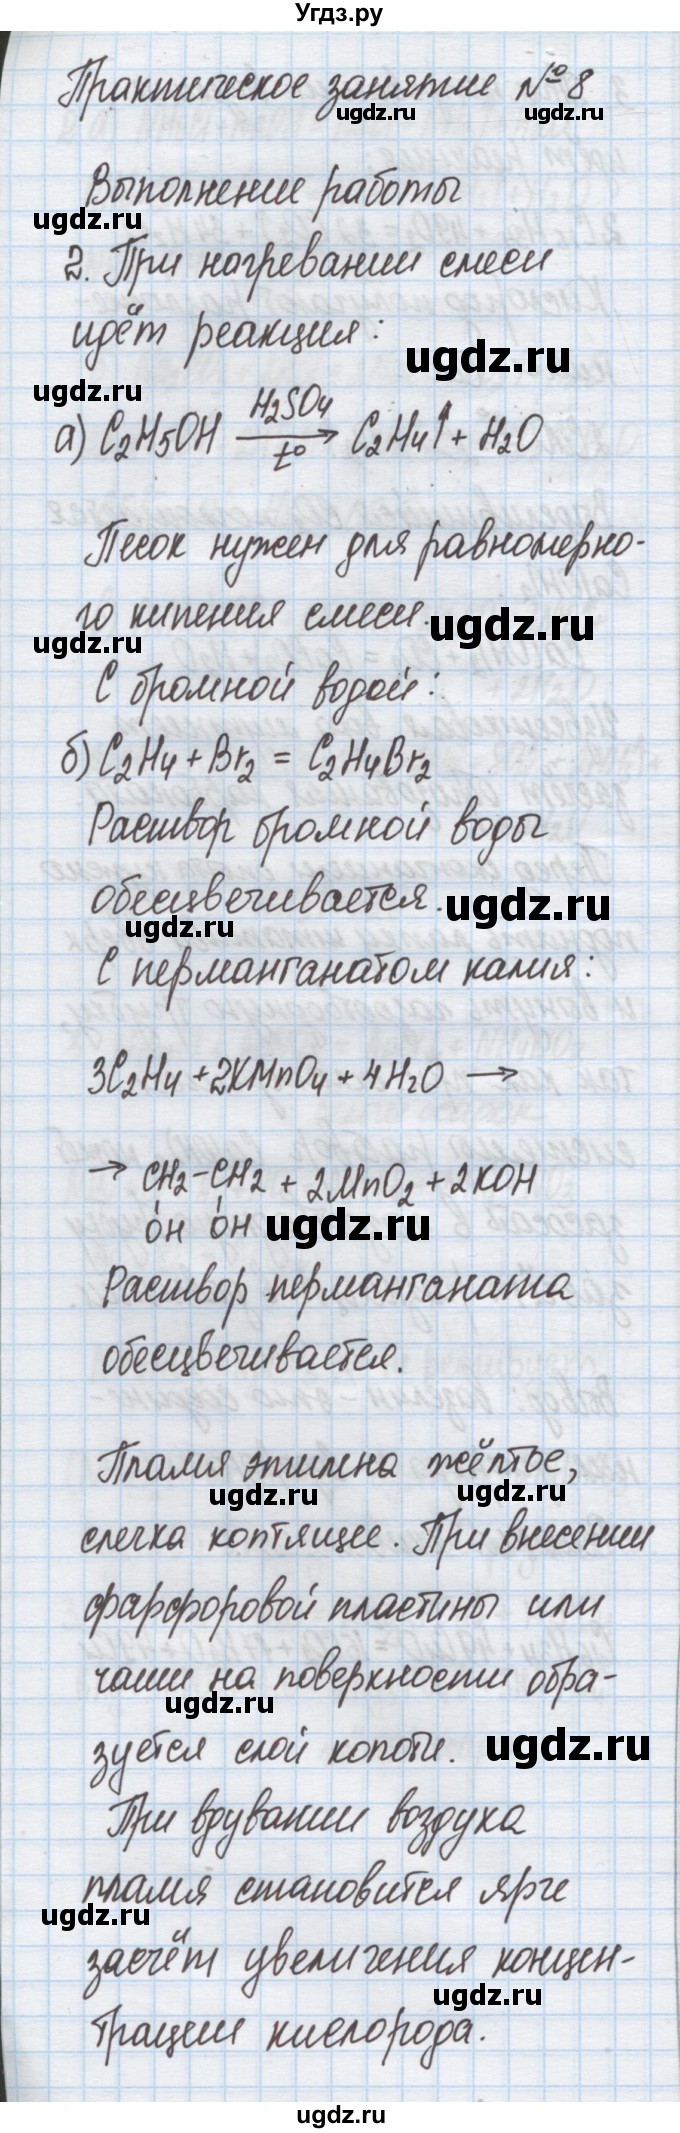 Угдз.ру
Практическое занятие № 8
ugdz.ru ugdz.ru
Выполнение работы
ugdz.ru
2. При нагревании смеси
идёт реакция:
ugdz.ru
а) C₂H₅OH H₂SO₄ → t° C₂H₄↑ + H₂O
Песок нужен для равномерно-
го кипения смеси.
ugdz.ru
ugdz.ru
С бромной водой:
б) C₂H₄ + Br₂ = C₂H₄Br₂
Раствор бромной воды
обесцвечивается.
ugdz.ru
ugdz.ru
С перманганатом калия:
3C₂H₄ + 2KMnO₄ + 4H₂O →
→ CH₂-CH₂ + 2MnO₂ + 2KOH
OH OH
ugdz.ru
Раствор перманганата
обесцвечивается.
Пламя этилена жёлтое,
ugdz.ru ugdz.ru
слегка коптящее. При внесении
фарфоровой пластины или
чаши на поверхности обра-
ugdz.ru
зуется слой копоти.
ugdz.ru
При вдувании воздуха
пламя становится ярче
ugdz.ru
засчёт увеличения концен-
ugdz.ru
трации кислорода.
ugdz.ru